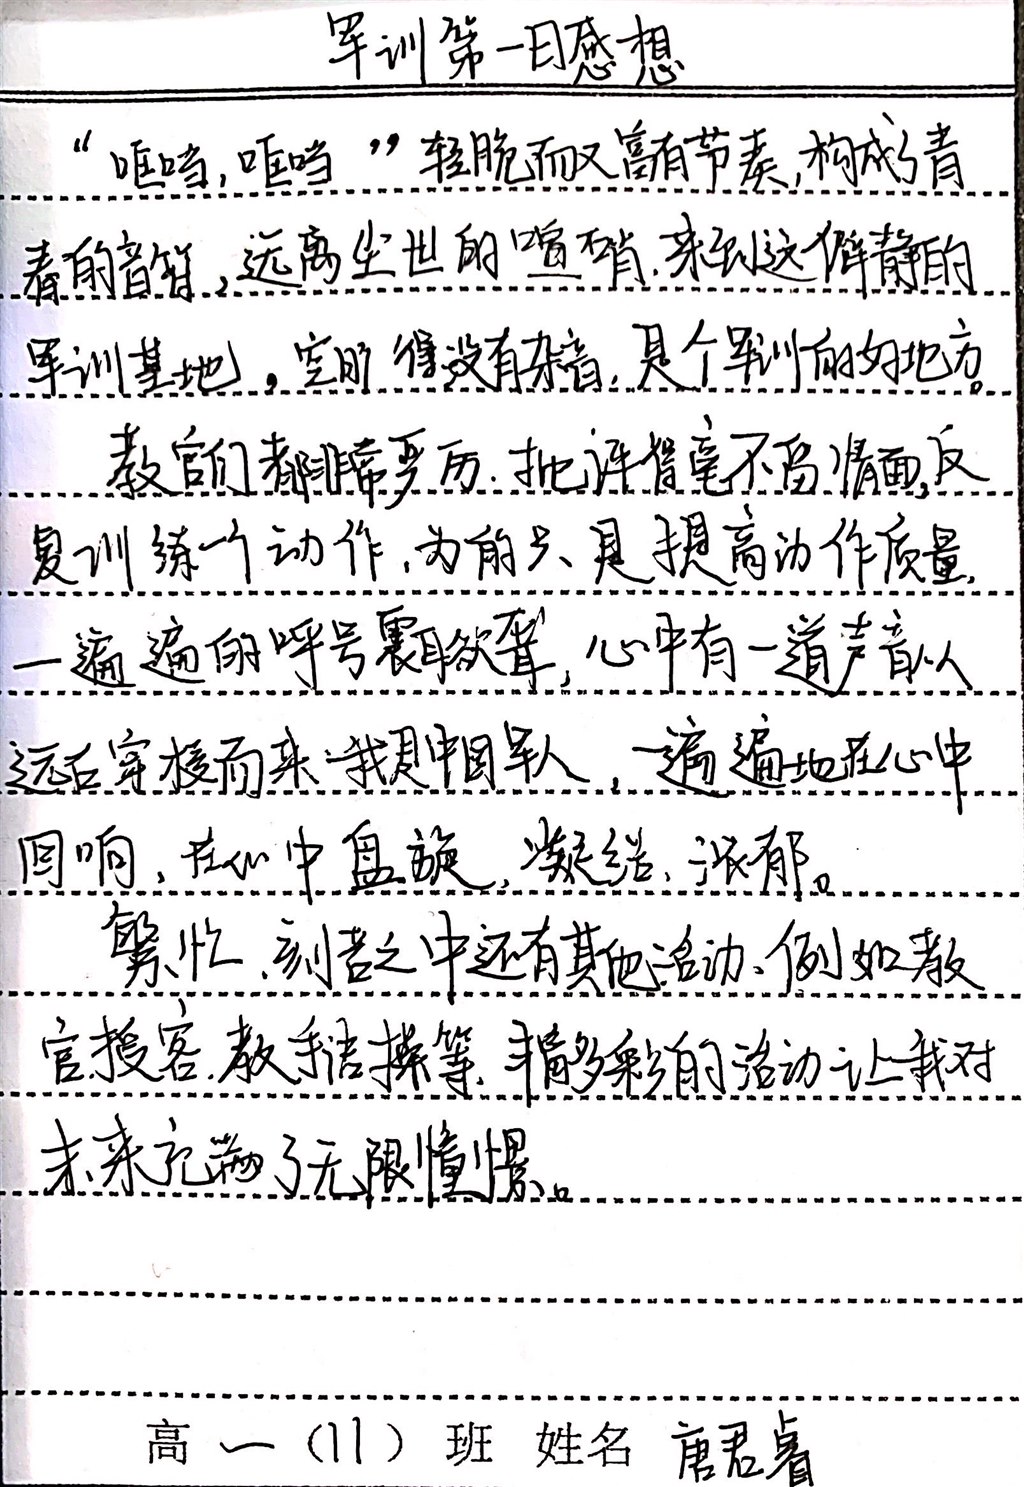 军训第一日感想
“哐当,哐当”轻脆而又富有节奏,构成了青
春的音符,远离尘世的喧哨.来到这僻静的
军训基地,空旷得没有杂音,是个军训的好地方。
教官们都非常严厉.批评得毫不留情面,反
复训练一个动作,为的只是提高动作质量,
一遍遍的呼号震耳欲聋,心中有一道声音从
远古穿梭而来:我是中国军人,一遍遍地在心中
回响,在心中盘旋,凝结、浓郁。
繁忙、刻苦之中还有其他活动、例如教
官授客.教手语操等,丰富多彩的活动让我对
未来充满了无限憧憬。
高一(11)班 姓名 唐君睿